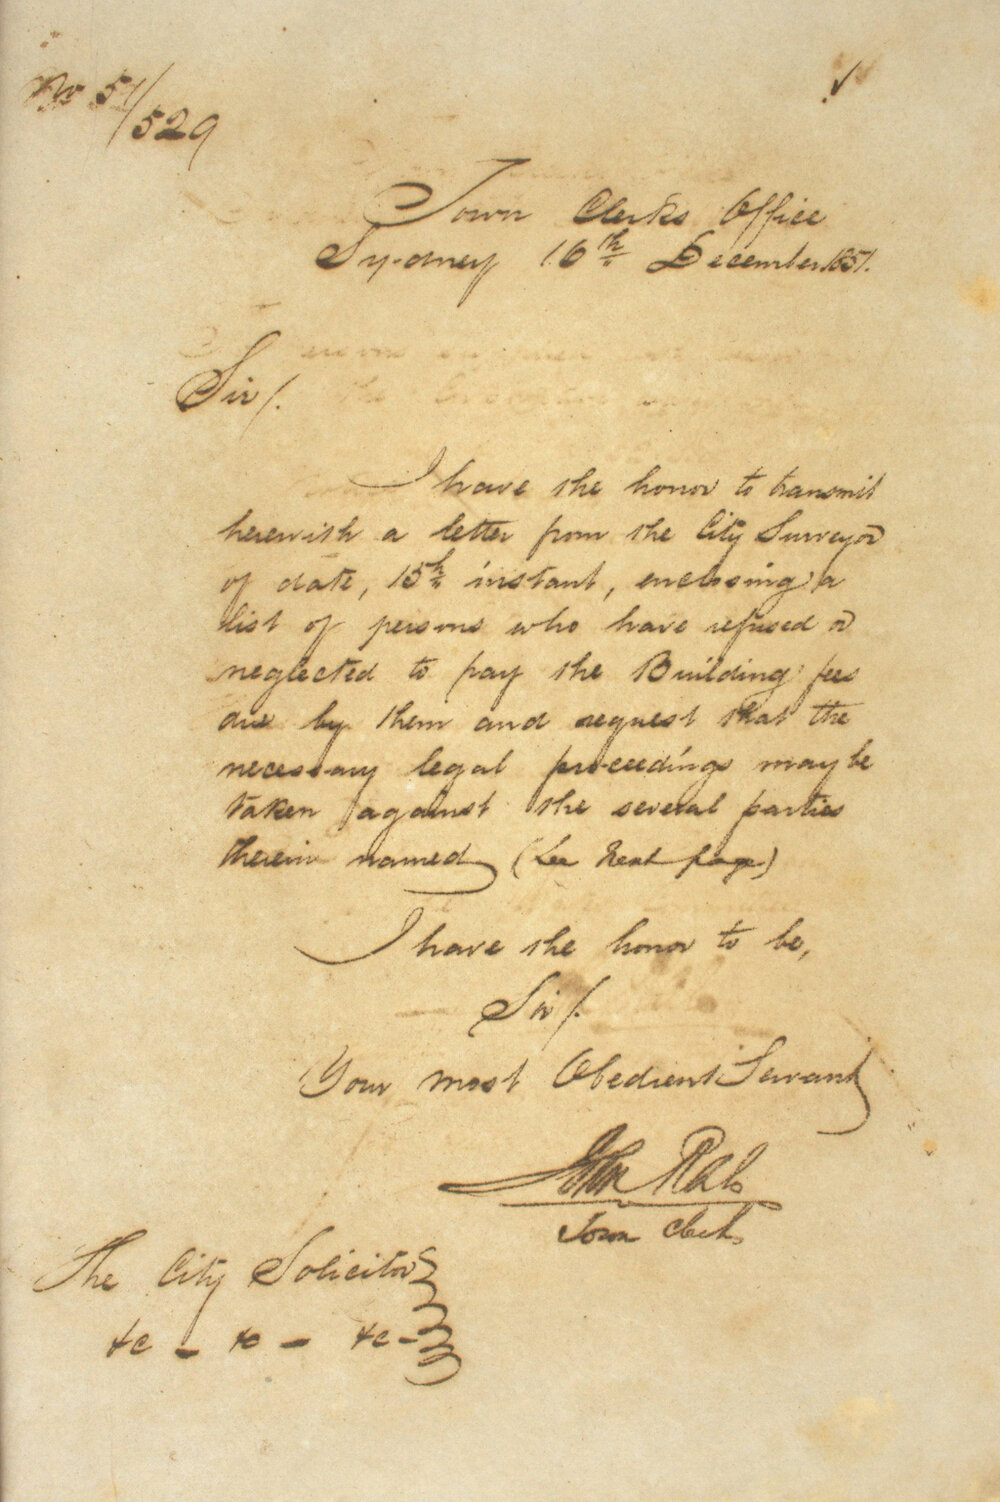 No 51/529
Town Clerks Office
Sydney 16th December 1851.
Sir/.
I have the honor to transmit
herewith a letter from the City Surveyor
of date, 15th instant, enclosing a
list of persons who have refused or
neglected to pay the Building fees
due by them and request that the
necessary legal proceedings may be
taken against the several parties
therein named (See Next page)
I have the honor to be,
Sir/.
Your most Obedient Servant
John Rae
Town Clerk
The City Solicitor
&c - &c - &c -